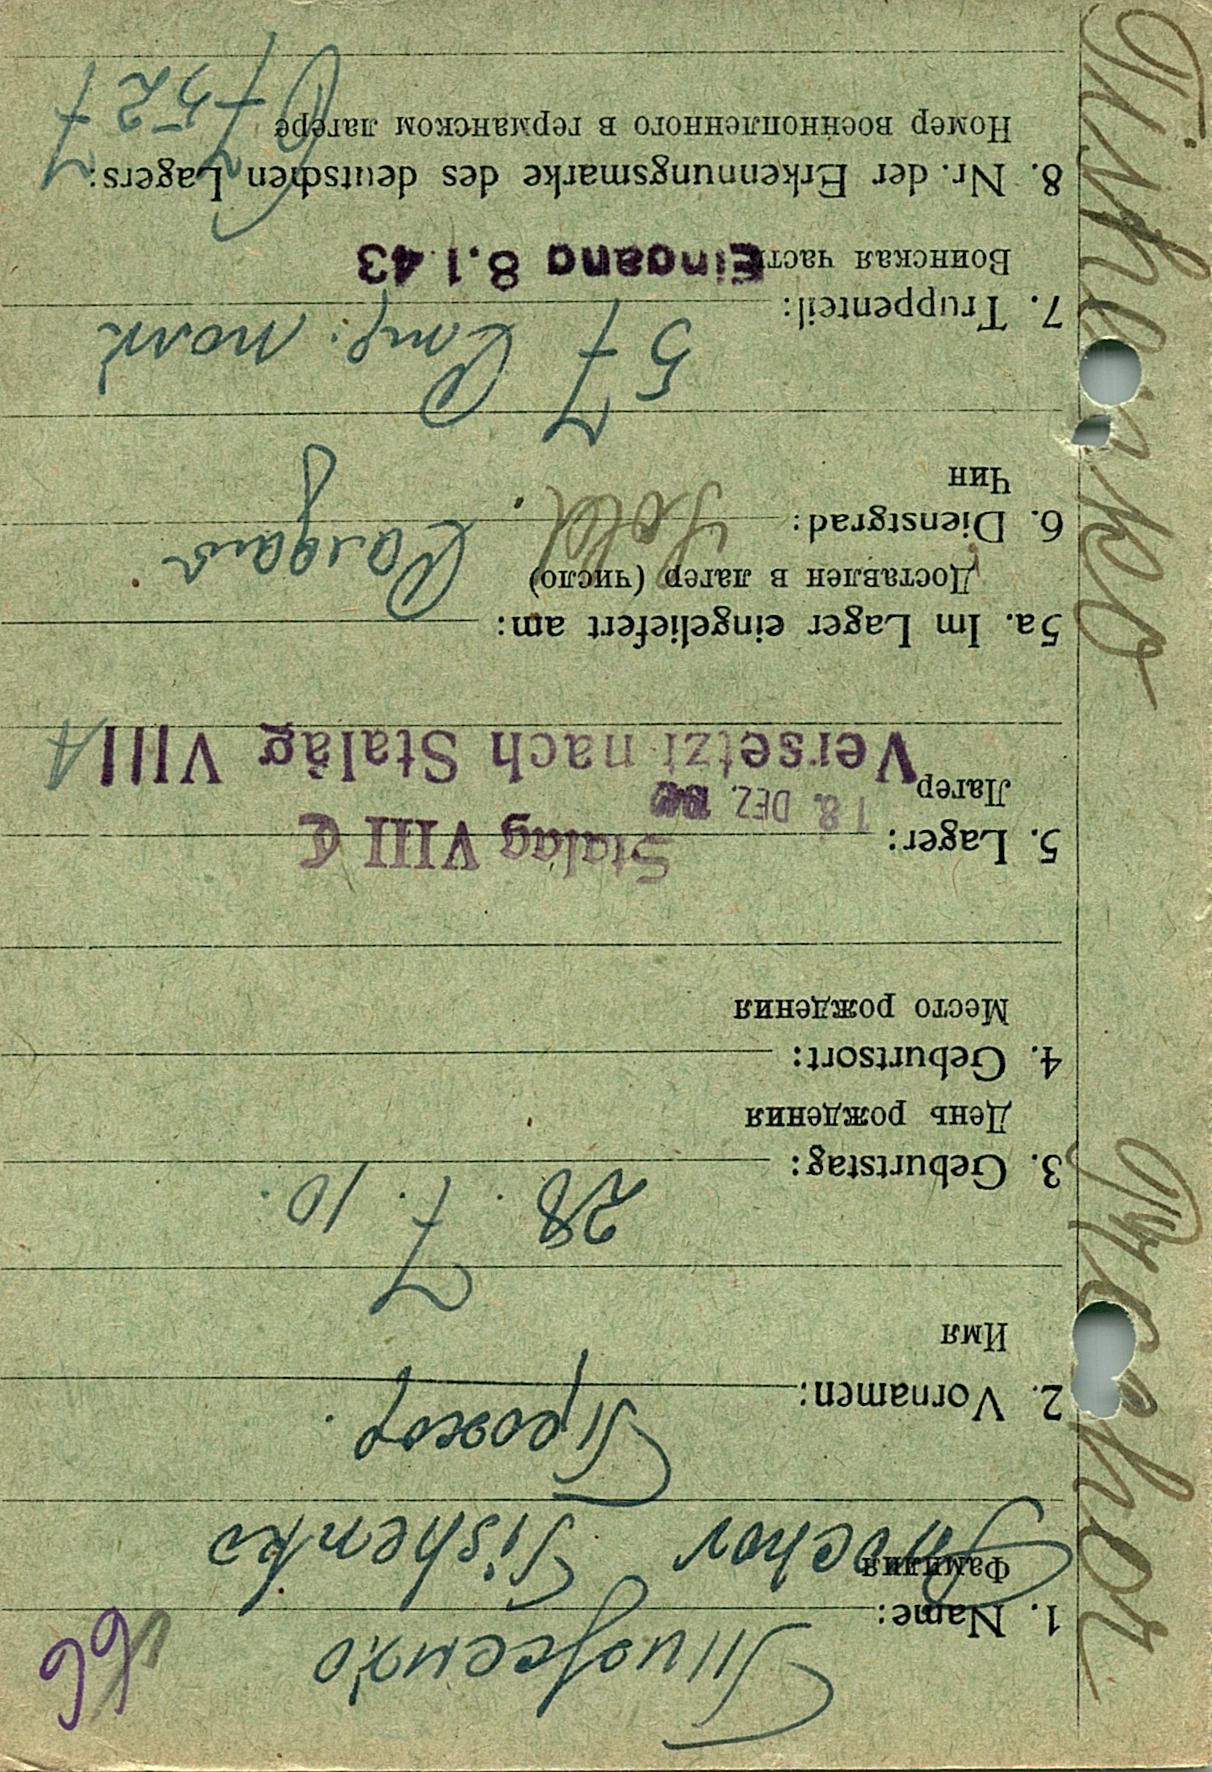 66
Тищенко
1. Name:
Фамилия
Prochor Tishenko
Прохор.
2. Vornamen:
Имя
28. 7. 10.
3. Geburtstag:
День рождения
4. Geburtsort:
Место рождения
Stalag VIII C
5. Lager:
18. DEZ.
Лагер
Versetzt nach Stalag VIII A
5a. Im Lager eingeliefert am:
Доставлен в лагер (число)
Sold. Солдат
6. Dienstgrad:
Чин
57 Стр. полк
7. Truppenteil:
Воинская часть
Eingang 8.1.43
8. Nr. der Erkennungsmarke des deutschen Lagers:
Номер военнопленного в германском лагере
7527
Tishenko
Prochor